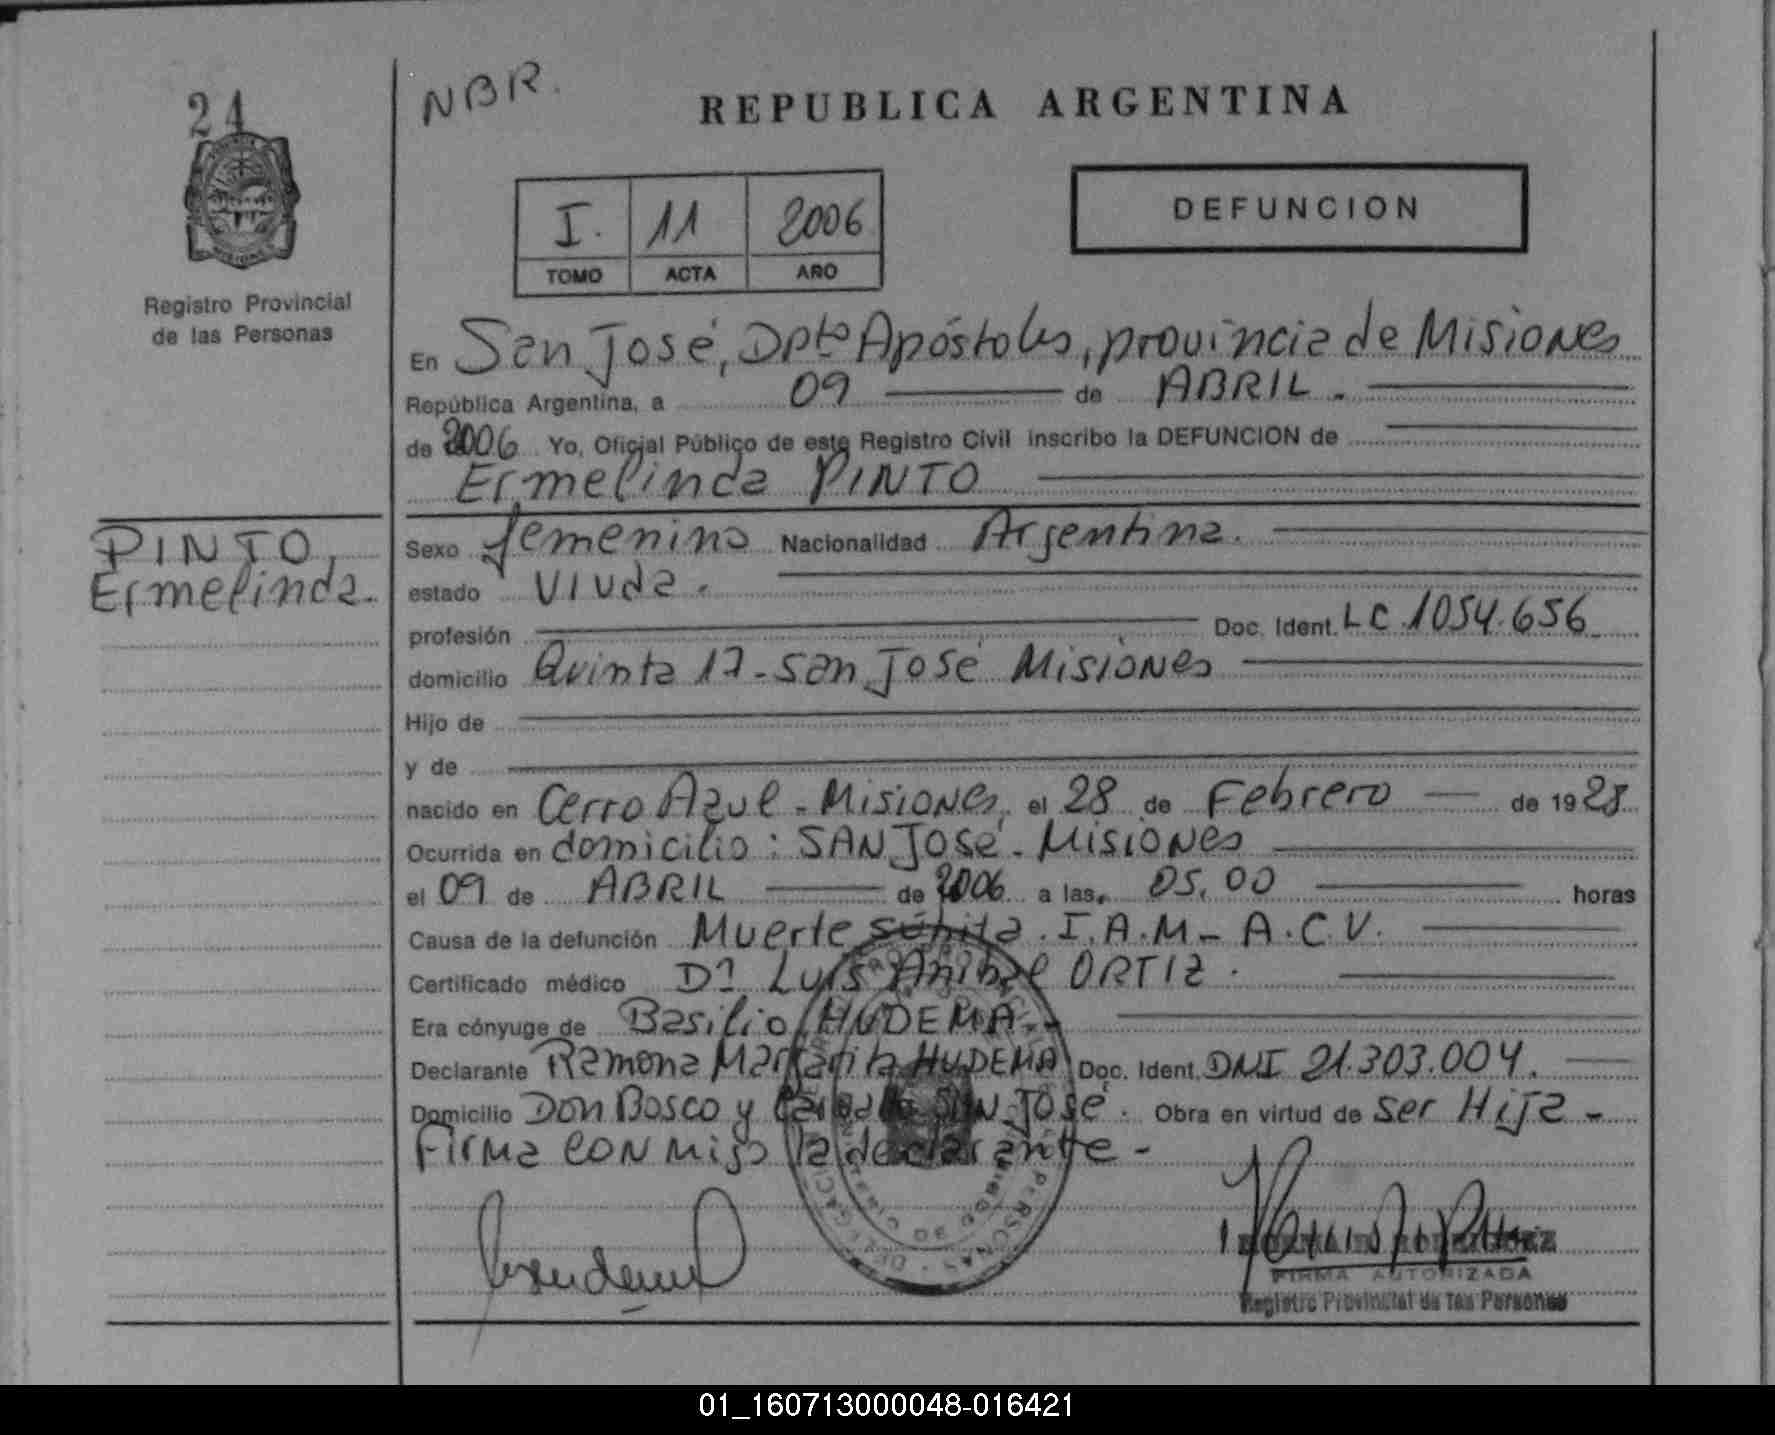 24
NBR.
REPUBLICA ARGENTINA
I. 11 2006
TOMO ACTA AÑO
DEFUNCION
Registro Provincial
de las Personas
En San José, Dpto Apóstoles, provincia de Misiones
República Argentina, a 09 de ABRIL.
de 2006 Yo, Oficial Público de este Registro Civil inscribo la DEFUNCION de
Ermelinda PINTO
PINTO,
Ermelinda.
Sexo femenino Nacionalidad Argentina.
estado Viuda.
profesión Doc. Ident. LC.1054.656
domicilio Quinta 17-San José Misiones
Hijo de
y de
nacido en Cerro Azul-Misiones, el 28 de Febrero de 1928
Ocurrida en domicilio: SAN José. Misiones
el 09 de ABRIL de 2006 a las, 05,00 horas
Causa de la defunción Muerte súbita. I.A.M- A.C.V.
Certificado médico Dr Luis Anibal ORTIZ.
Era cónyuge de Basilio HUDEMA.-
Declarante Ramona Margarita HUDEMA Doc. Ident. DNI 21.303.004.
Domicilio Don Bosco y SAN José. Obra en virtud de ser Hija-
Firma conmigo la declarante-
FIRMA AUTORIZADA
Registro Provincial de las Personas
01_160713000048-016421